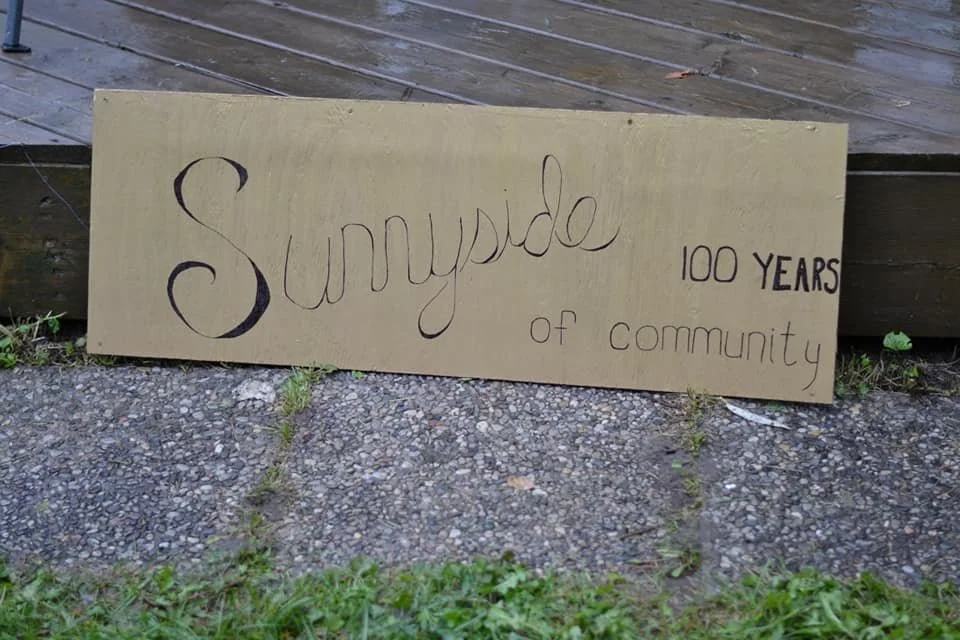 Sunnyside
100 YEARS
of community